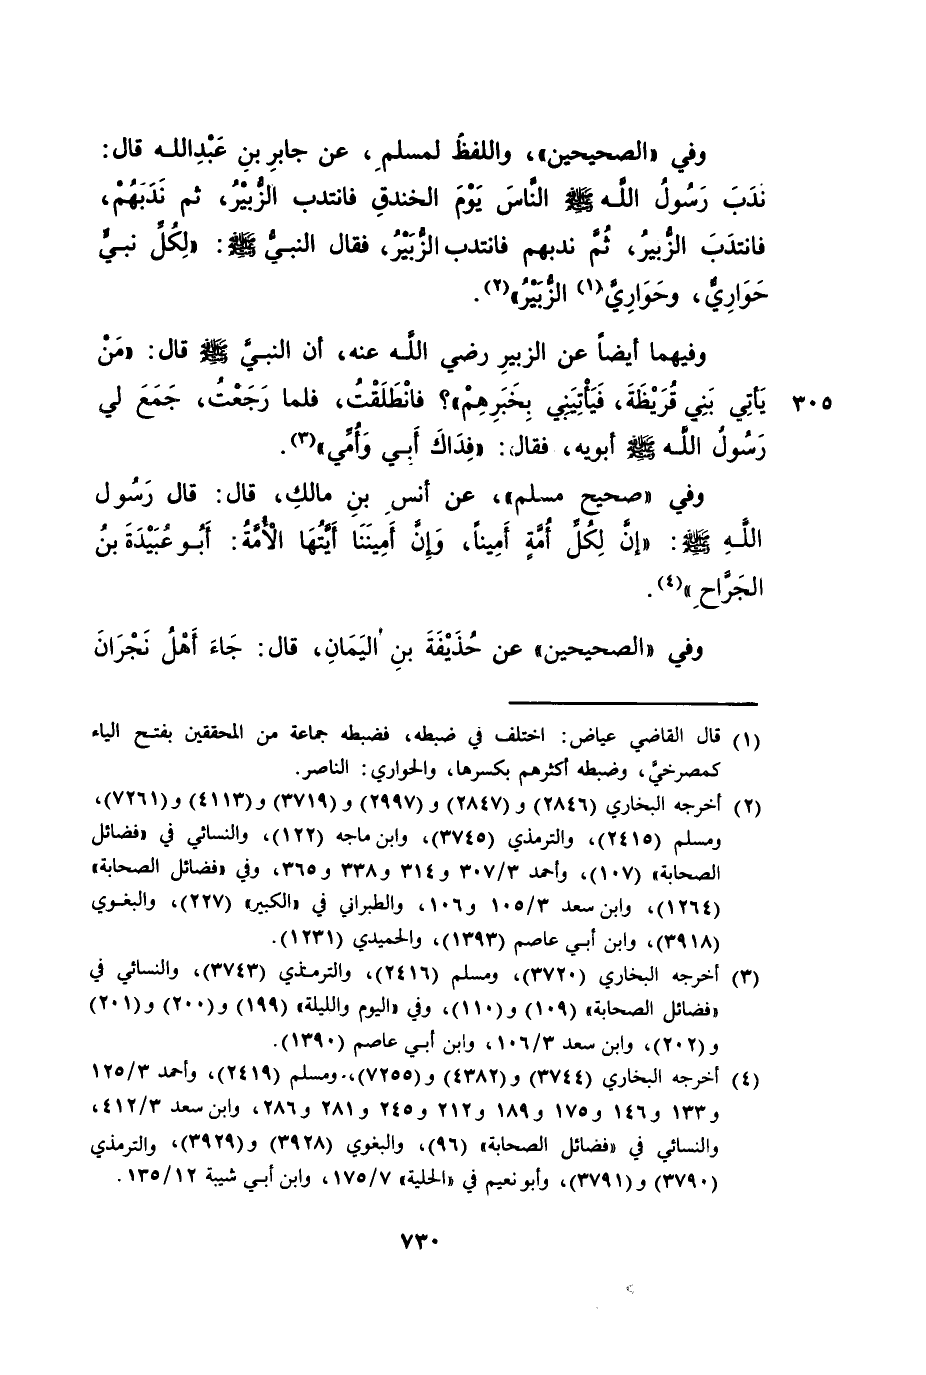 وفي «الصحيحين»، واللفظُ لمسلمٍ، عن جابرِ بنِ عَبْدِاللـه قال:
نَدَبَ رَسُولُ اللَّـه ﷺ النَّاسَ يَوْمَ الخندقِ فانتدب الزُّبَيْرُ، ثم نَدَبَهُمْ،
فانتدَبَ الزُّبيرُ، ثُمَّ ندبهم فانتدب الزُّبَيْرُ، فقال النبيُّ ﷺ: «لِكُلِّ نبيٍّ
حَوَارِيٌّ، وحَوَارِيَّ(١) الزُّبَيْرُ»(٢).
وفيهما أيضاً عن الزبيرِ رضي اللَّـه عنه، أن النبـيَّ ﷺ قال: «مَنْ
يَأتِي بَنِي قُرَيْظَةَ، فَيَأْتِيَنِي بِخَبَرِهِمْ»؟ فانْطَلَقْتُ، فلما رَجَعْتُ، جَمَعَ لي ٣٠٥
رَسُولُ اللَّـه ﷺ أبويه، فقال: «فِدَاكَ أَبِـي وَأُمِّي»(٣).
وفي «صحيح مسلم»، عن أنسِ بنِ مالكٍ، قال: قال رَسُول
اللَّـهِ ﷺ: «إنَّ لِكُلِّ أُمَّةٍ أَمِيناً، وَإِنَّ أَمِينَنَا أَيَّتُهَا الْأُمَّةُ: أَبُـو عُبَيْدَةَ بنُ
الجَرَّاحِ»(٤).
وفي «الصحيحين» عن حُذَيْفَةَ بنِ اليَمَانِ، قال: جَاءَ أَهْلُ نَجْرَانَ
(١) قال القاضي عياض: اختلف في ضبطه، فضبطه جماعة من المحققين بفتح الياء
كمصرخيَّ، وضبطه أكثرهم بكسرها، والحواري: الناصر.
(٢) أخرجه البخاري (٢٨٤٦) و (٢٨٤٧) و (٢٩٩٧) و (٣٧١٩) و(٤١١٣) و(٧٢٦١)،
ومسلم (٢٤١٥)، والترمذي (٣٧٤٥)، وابن ماجه (١٢٢)، والنسائي في «فضائل
الصحابة» (١٠٧)، وأحمد ٣٠٧/٣ و٣١٤ و٣٣٨ و٣٦٥، وفي «فضائل الصحابة»
(١٢٦٤)، وابن سعد ١٠٥/٣ و١٠٦، والطبراني في «الكبير» (٢٢٧)، والبغـوي
(٣٩١٨)، وابن أبـي عاصم (١٣٩٣)، والحميدي (١٢٣١).
(٣) أخرجه البخاري (٣٧٢٠)، ومسلم (٢٤١٦)، والترمـذي (٣٧٤٣)، والنسائي في
«فضائل الصحابة» (١٠٩) و(١١٠)، وفي «اليوم والليلة» (١٩٩) و(٢٠٠) و(٢٠١)
و(٢٠٢)، وابن سعد ١٠٦/٣، وابن أبـي عاصم (١٣٩٠).
(٤) أخرجه البخاري (٣٧٤٤) و(٤٣٨٢) و(٧٢٥٥)، ومسلم (٢٤١٩)، وأحمد ١٢٥/٣
و١٣٣ و١٤٦ و١٧٥ و١٨٩ و٢١٢ و٢٤٥ و٢٨١ و٢٨٦، وابن سعد ٤١٢/٣،
والنسائي في «فضائل الصحابة» (٩٦)، والبغوي (٣٩٢٨) و(٣٩٢٩)، والترمذي
(٣٧٩٠) و(٣٧٩١)، وأبو نعيم في «الحلية» ١٧٥/٧، وابن أبـي شيبة ١٣٥/١٢.
٧٣٠